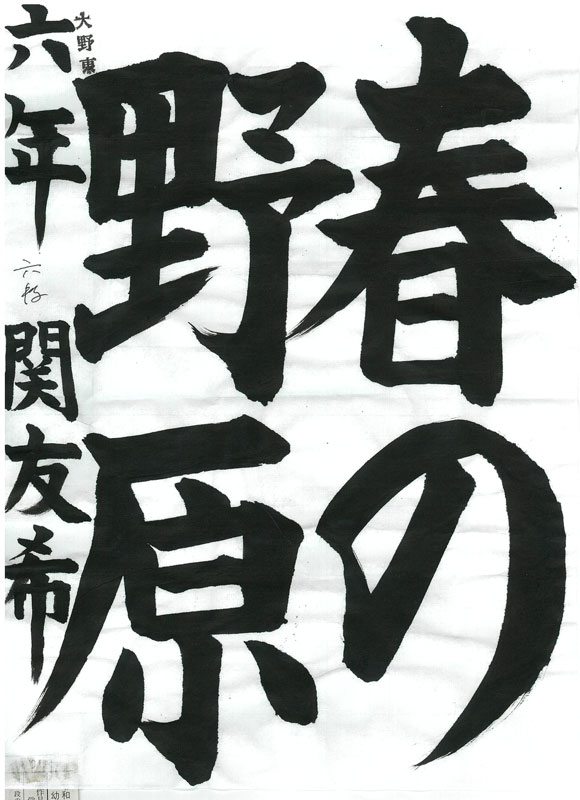 春の
野原
大野東
六年 関友希
六段